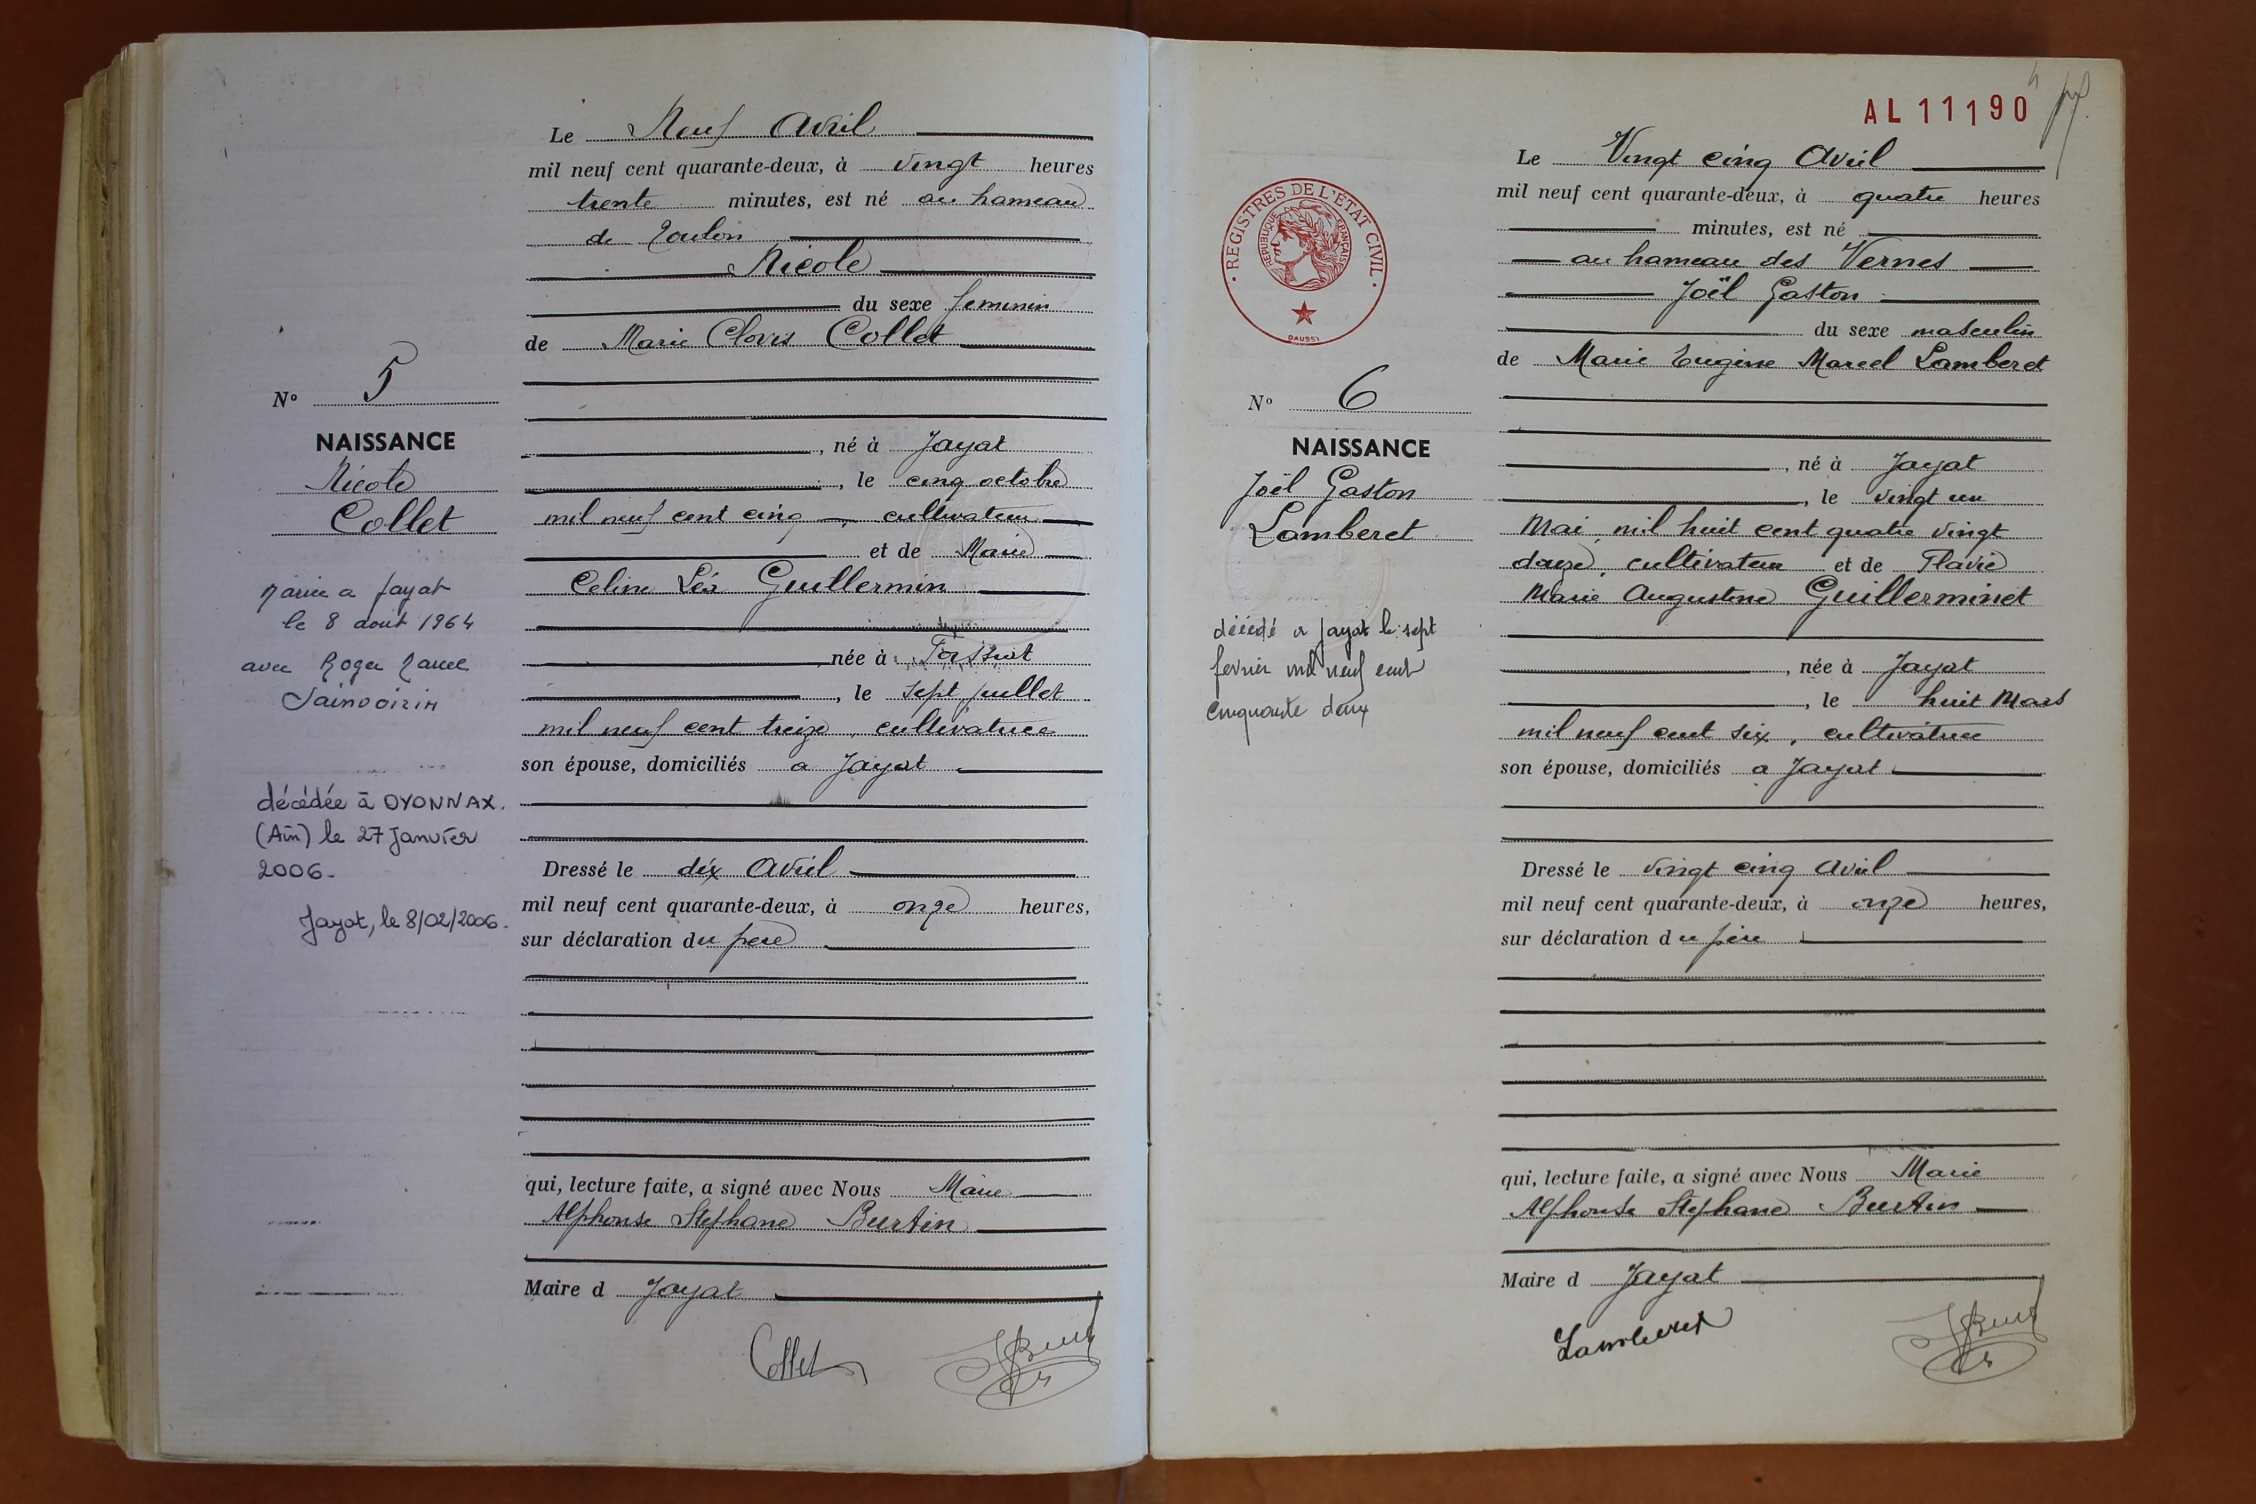 Le Neuf Avril
mil neuf cent quarante-deux, à vingt heures
trente minutes, est né au hameau
de Toulon
Nicole
du sexe feminin
de Marie Clovis Collet
N° 5
NAISSANCE
Nicole
Collet
, né à Jayat
, le cinq octobre
mil neuf cent cinq, cultivateur
et de Marie
Celine Léa Guillermin
née à Foissiat
, le sept juillet
mil neuf cent treize, cultivatrice
son épouse, domiciliés a Jayat
Mariée a Jayat
le 8 aout 1964
avec Roger
décédée à OYONNAX.
(Ain) le 27 Janvier
2006.
Jayat, le 8/02/2006.
Dressé le dix Avril
mil neuf cent quarante-deux, à onze heures,
sur déclaration du pere
qui, lecture faite, a signé avec Nous Marie
Alphonse Stephane Burtin
Maire d Jayat
Collet
AL 11190
REGISTRES DE L'ETAT CIVIL
REPUBLIQUE FRANÇAISE
DAUSSY
Le Vingt cinq Avril
mil neuf cent quarante-deux, à quatre heures
minutes, est né
au hameau des Vernes
Joël Gaston
du sexe masculin
de Marie Eugène Marcel Lamberet
N° 6
NAISSANCE
Joël Gaston
Lamberet
décédé a Jayat le sept
fevrier mil neuf cent
cinquante deux
, né à Jayat
, le vingt un
Mai, mil huit cent quatre vingt
douze, cultivateur et de Flavie
Marie Augustine Guilleminet
, née à Jayat
, le huit Mars
mil neuf cent six, cultivatrice
son épouse, domiciliés a Jayat
Dressé le vingt cinq Avril
mil neuf cent quarante-deux, à onze heures,
sur déclaration du père
qui, lecture faite, a signé avec Nous Marie
Alphonse Stephane Burtin
Maire d Jayat
Lamberet